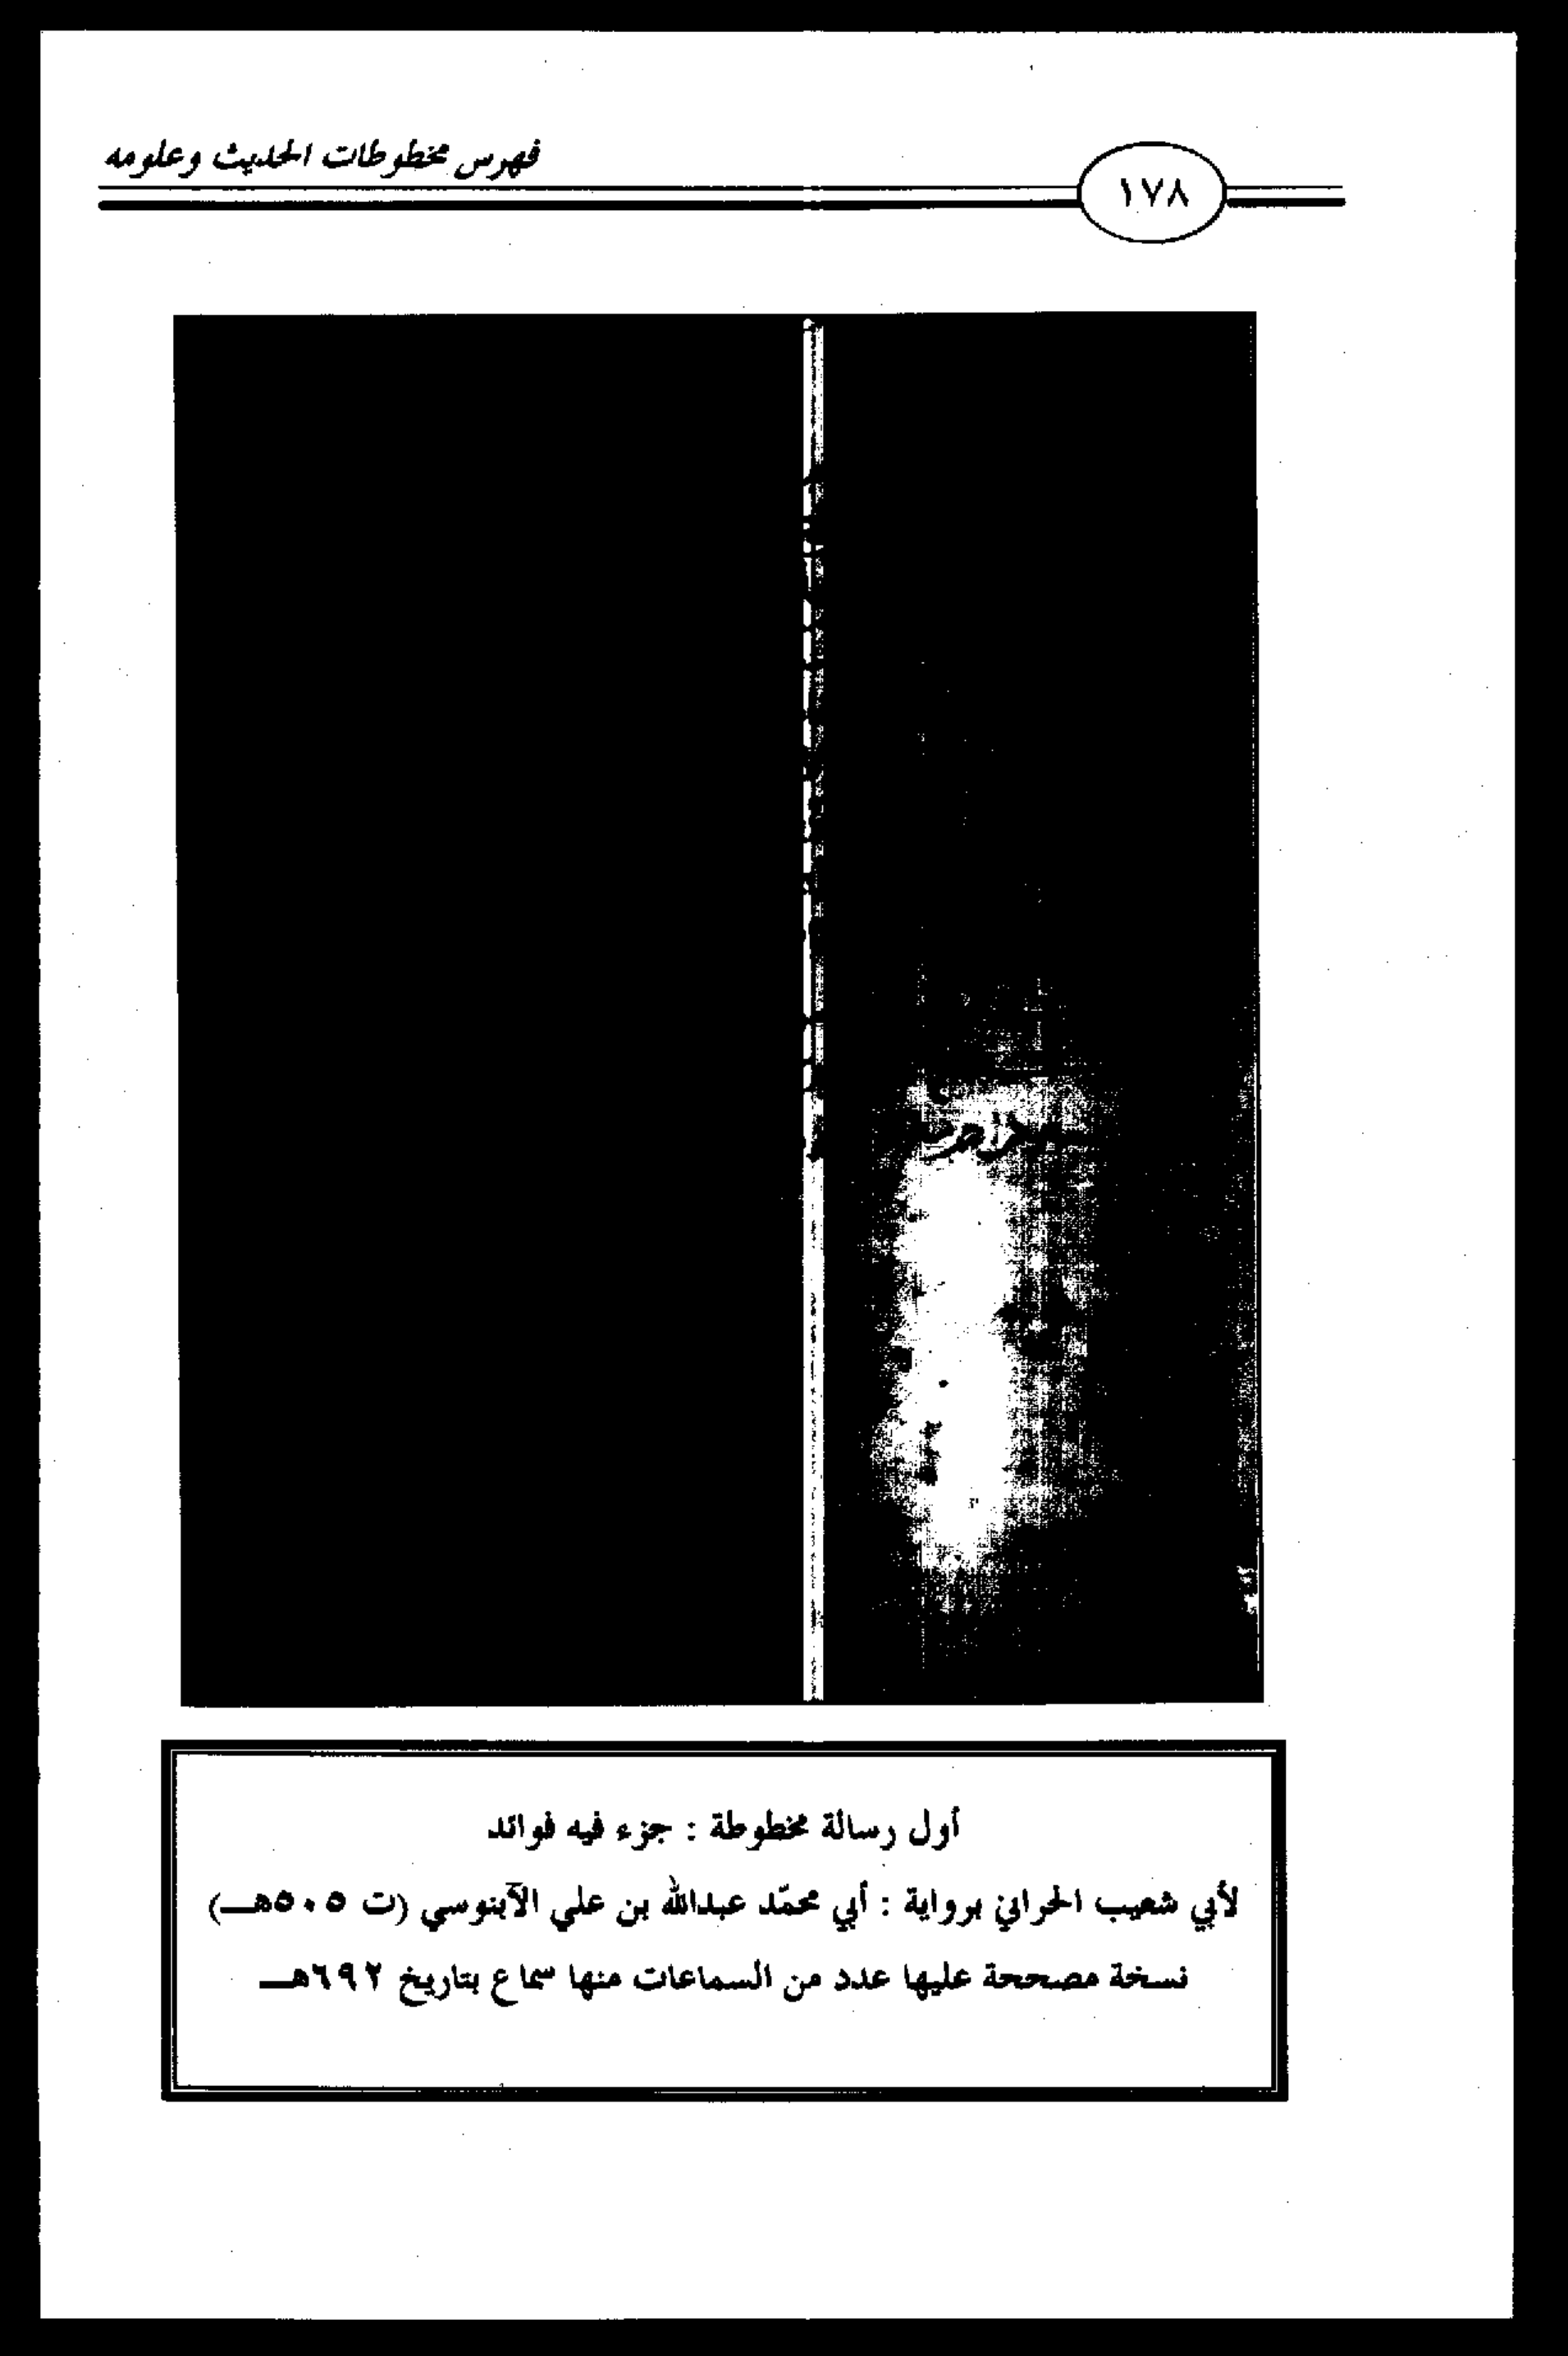 فهرس مخطوطات الحديث وعلومه
١٧٨
أول رسالة مخطوطة : جزء فيه فوائد
لأبي شعيب الحراني برواية : أبي محمّد عبدالله بن علي الآبنوسي (ت ٥٠٥هـــ)
نسخة مصححة عليها عدد من السماعات منها سماع بتاريخ ٦٩٢هـــ